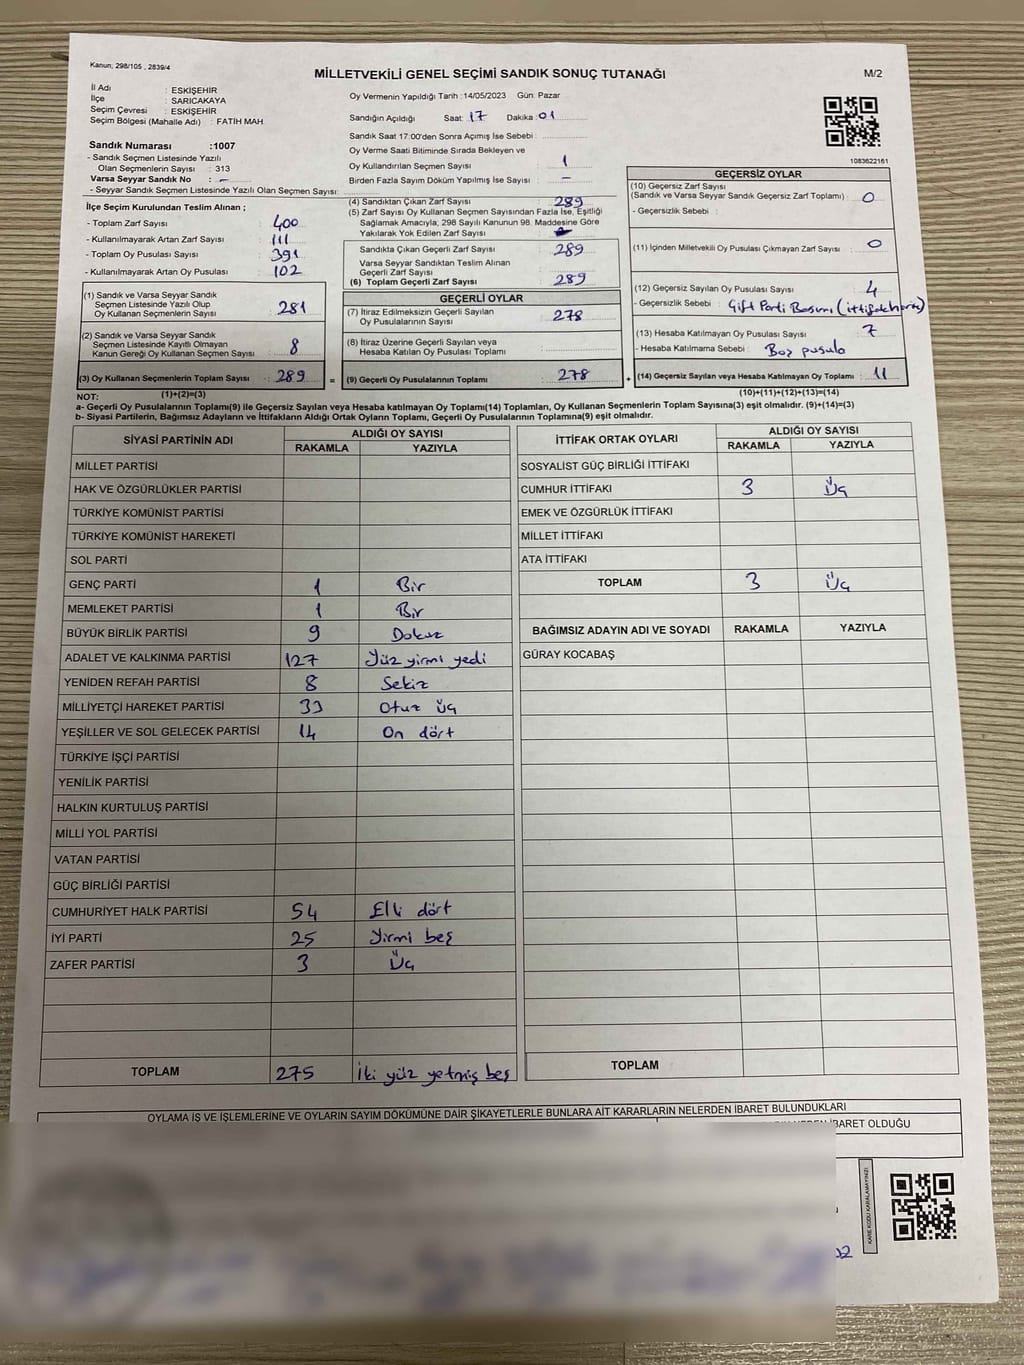 Kanun; 298/105 , 2839/4
MİLLETVEKİLİ GENEL SEÇİMİ SANDIK SONUÇ TUTANAĞI
M/2
İl Adı : ESKİŞEHİR
İlçe : SARICAKAYA
Seçim Çevresi : ESKİŞEHİR
Seçim Bölgesi (Mahalle Adı) : FATİH MAH.
Sandık Numarası :1007
- Sandık Seçmen Listesinde Yazılı
Olan Seçmenlerin Sayısı : 313
Varsa Seyyar Sandık No : -
- Seyyar Sandık Seçmen Listesinde Yazılı Olan Seçmen Sayısı:
Oy Vermenin Yapıldığı Tarih :14/05/2023 Gün: Pazar
Sandığın Açıldığı Saat: 17 Dakika: 01
Sandık Saat 17:00'den Sonra Açılmış İse Sebebi :
Oy Verme Saati Bitiminde Sırada Bekleyen ve
Oy Kullandırılan Seçmen Sayısı : 1
Birden Fazla Sayım Döküm Yapılmış İse Sayısı : -
1083622161
İlçe Seçim Kurulundan Teslim Alınan ;
- Toplam Zarf Sayısı : 400
- Kullanılmayarak Artan Zarf Sayısı : 111
- Toplam Oy Pusulası Sayısı : 391
- Kullanılmayarak Artan Oy Pusulası : 102
(1) Sandık ve Varsa Seyyar Sandık
Seçmen Listesinde Yazılı Olup
Oy Kullanan Seçmenlerin Sayısı : 281
(2) Sandık ve Varsa Seyyar Sandık
Seçmen Listesinde Kayıtlı Olmayan
Kanun Gereği Oy Kullanan Seçmen Sayısı : 8
(3) Oy Kullanan Seçmenlerin Toplam Sayısı : 289 =
(4) Sandıktan Çıkan Zarf Sayısı : 289
(5) Zarf Sayısı Oy Kullanan Seçmen Sayısından Fazla İse, Eşitliği
Sağlamak Amacıyla, 298 Sayılı Kanunun 98. Maddesine Göre
Yakılarak Yok Edilen Zarf Sayısı :
Sandıkta Çıkan Geçerli Zarf Sayısı : 289
Varsa Seyyar Sandıktan Teslim Alınan
Geçerli Zarf Sayısı :
(6) Toplam Geçerli Zarf Sayısı : 289
GEÇERLİ OYLAR
(7) İtiraz Edilmeksizin Geçerli Sayılan
Oy Pusulalarının Sayısı : 278
(8) İtiraz Üzerine Geçerli Sayılan veya
Hesaba Katılan Oy Pusulası Toplamı :
(9) Geçerli Oy Pusulalarının Toplamı : 278 +
GEÇERSİZ OYLAR
(10) Geçersiz Zarf Sayısı
(Sandık ve Varsa Seyyar Sandık Geçersiz Zarf Toplamı) : 0
- Geçersizlik Sebebi :
(11) İçinden Milletvekili Oy Pusulası Çıkmayan Zarf Sayısı : 0
(12) Geçersiz Sayılan Oy Pusulası Sayısı : 4
- Geçersizlik Sebebi : Çift Parti Basımı (ittifak hariç)
(13) Hesaba Katılmayan Oy Pusulası Sayısı : 7
- Hesaba Katılmama Sebebi : Boş pusula
(14) Geçersiz Sayılan veya Hesaba Katılmayan Oy Toplamı : 11
NOT: (1)+(2)=(3) (10)+(11)+(12)+(13)=(14)
a- Geçerli Oy Pusulalarının Toplamı(9) ile Geçersiz Sayılan veya Hesaba katılmayan Oy Toplamı(14) Toplamları, Oy Kullanan Seçmenlerin Toplam Sayısına(3) eşit olmalıdır. (9)+(14)=(3)
b- Siyasi Partilerin, Bağımsız Adayların ve İttifakların Aldığı Ortak Oyların Toplamı, Geçerli Oy Pusulalarının Toplamına(9) eşit olmalıdır.
SİYASİ PARTİNİN ADI ALDIĞI OY SAYISI
RAKAMLA YAZIYLA
MİLLET PARTİSİ
HAK VE ÖZGÜRLÜKLER PARTİSİ
TÜRKİYE KOMÜNİST PARTİSİ
TÜRKİYE KOMÜNİST HAREKETİ
SOL PARTİ
GENÇ PARTİ 1 Bir
MEMLEKET PARTİSİ 1 Bir
BÜYÜK BİRLİK PARTİSİ 9 Dokuz
ADALET VE KALKINMA PARTİSİ 127 Yüz yirmi yedi
YENİDEN REFAH PARTİSİ 8 Sekiz
MİLLİYETÇİ HAREKET PARTİSİ 33 Otuz üç
YEŞİLLER VE SOL GELECEK PARTİSİ 14 On dört
TÜRKİYE İŞÇİ PARTİSİ
YENİLİK PARTİSİ
HALKIN KURTULUŞ PARTİSİ
MİLLİ YOL PARTİSİ
VATAN PARTİSİ
GÜÇ BİRLİĞİ PARTİSİ
CUMHURİYET HALK PARTİSİ 54 Elli dört
İYİ PARTİ 25 Yirmi beş
ZAFER PARTİSİ 3 Üç
TOPLAM 275 İki yüz yetmiş beş
İTTİFAK ORTAK OYLARI ALDIĞI OY SAYISI
RAKAMLA YAZIYLA
SOSYALİST GÜÇ BİRLİĞİ İTTİFAKI
CUMHUR İTTİFAKI 3 Üç
EMEK VE ÖZGÜRLÜK İTTİFAKI
MİLLET İTTİFAKI
ATA İTTİFAKI
TOPLAM 3 Üç
BAĞIMSIZ ADAYIN ADI VE SOYADI RAKAMLA YAZIYLA
GÜRAY KOCABAŞ
TOPLAM
OYLAMA İŞ VE İŞLEMLERİNE VE OYLARIN SAYIM DÖKÜMÜNE DAİR ŞİKAYETLERLE BUNLARA AİT KARARLARIN NELERDEN İBARET BULUNDUKLARI
İBARET OLDUĞU
KARE KODU KARALAMAYINIZ!